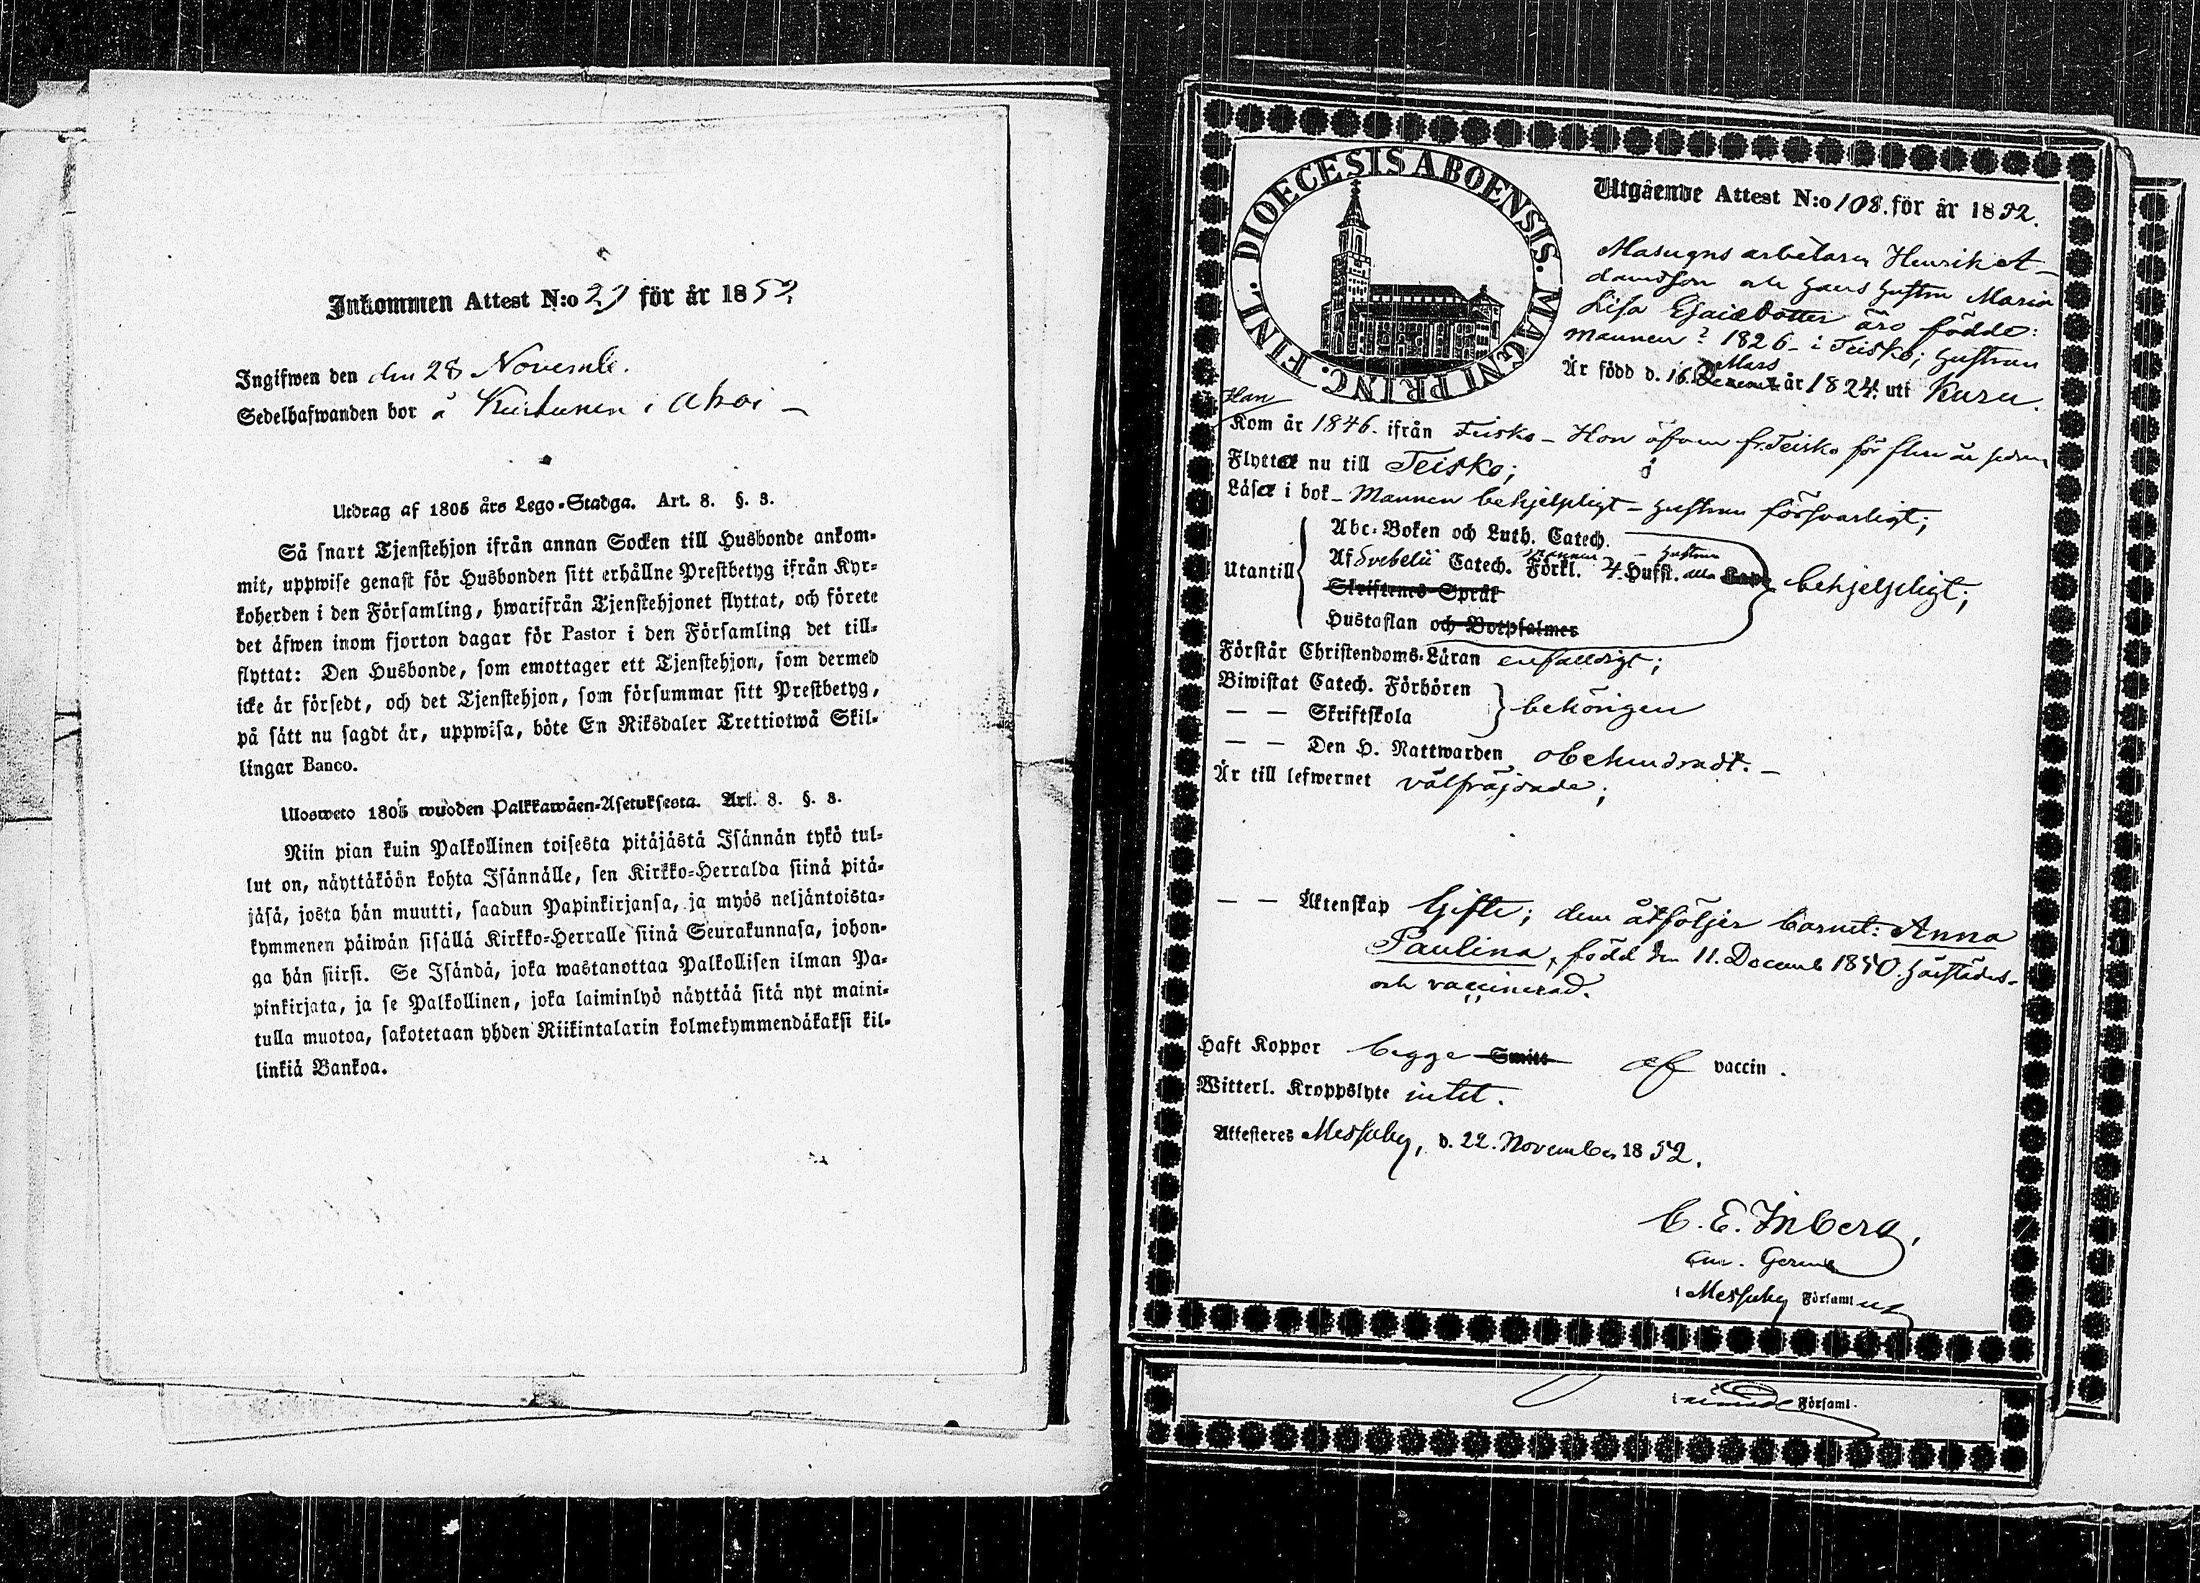 Inkommen Attest N:o 29 för år 1852.
Ingifwen den den 28 Novembr.
Sedelhafwanden bor å Kurkunen i Ahoi –
Utdrag af 1805 års Lego-Stadga. Art. 8. §. 3.
Så snart Tjenstehjon ifrån annan Socken till Husbonde ankom-
mit, uppwise genast för Husbonden sitt erhållne Prestbetyg ifrån Kyr-
koherden i den Församling, hwarifrån Tjenstehjonet flyttat, och förete
det äfwen inom fjorton dagar för Pastor i den Församling det till-
flyttat: Den Husbonde, som emottager ett Tjenstehjon, som dermed
icke är försedt, och det Tjenstehjon, som försummar sitt Prestbetyg,
på sätt nu sagdt är, uppwisa, böte En Riksdaler Trettiotwå Skil-
lingar Banco.
Ulosweto 1805 wuoden Palkkawäen-Asetuksesta. Art. 8. §. 3.
Niin pian kuin Palkollinen toisesta pitäjästä Isännän tykö tul-
lut on, näyttäköön kohta Isännälle, sen Kirkko-Herralda siinä pitä-
jäsä, josta hän muutti, saadun Papinkirjansa, ja myös neljäntoista-
kymmenen päiwän sisällä Kirkko-Herralle siinä Seurakunnasa, johon-
ga hän siirsi. Se Isändä, joka wastanottaa Palkollisen ilman Pa-
pinkirjata, ja se Palkollinen, joka laiminlyö näyttää sitä nyt maini-
tulla muotoa, sakotetaan yhden Riikintalarin kolmekymmendäkaksi kil-
linkiä Bankoa.
DIOECESIS ABOENSIS. MAGNI PRINC. FINL.
Utgående Attest N:o 108. för år 1852.
Masugns arbetaren Henrik A-
damsson och hans hustru Maria
Lisa Esaiedotter äro födde:
mannen ? 1826 – i Teisko; hustrun
Mars
Är född d. 16. Decemb år 1824. uti Kuru.
Han
Kom år 1846. ifrån Teisko – Hon äfven fr. Teisko för flere år sedan
Flyttar nu till Teisko;
Läsa i bok – Mannen behjelpligt – hustrun försvarligt;
Abc-Boken och Luth. Catech.
mannen – hustrun
Utantill Af Svebelii Catech. Förkl. 4. Hufst. alla behjelpligt;
Skriftenes Språk
Hustaflan och Botpsalmer
Förstår Christendoms-Läran enfalldigt;
Biwistat Catech. Förhören
— — Skriftskola behörigen
— — Den H. Nattwarden obehindradt. –
Är till lefwernet välfräjdade;
— — Äktenskap Gifte; dem åtföljer barnet: Anna
Paulina, född den 11. Decemb 1850. härstädes –
och vaccinerad.
Haft Koppor begge Smitt af vaccin.
Witterl. Kroppslyte intet.
Attesteres Messuby, d. 22. November 1852.
C. E. Inberg,
i Messuby Församl
i Församl.